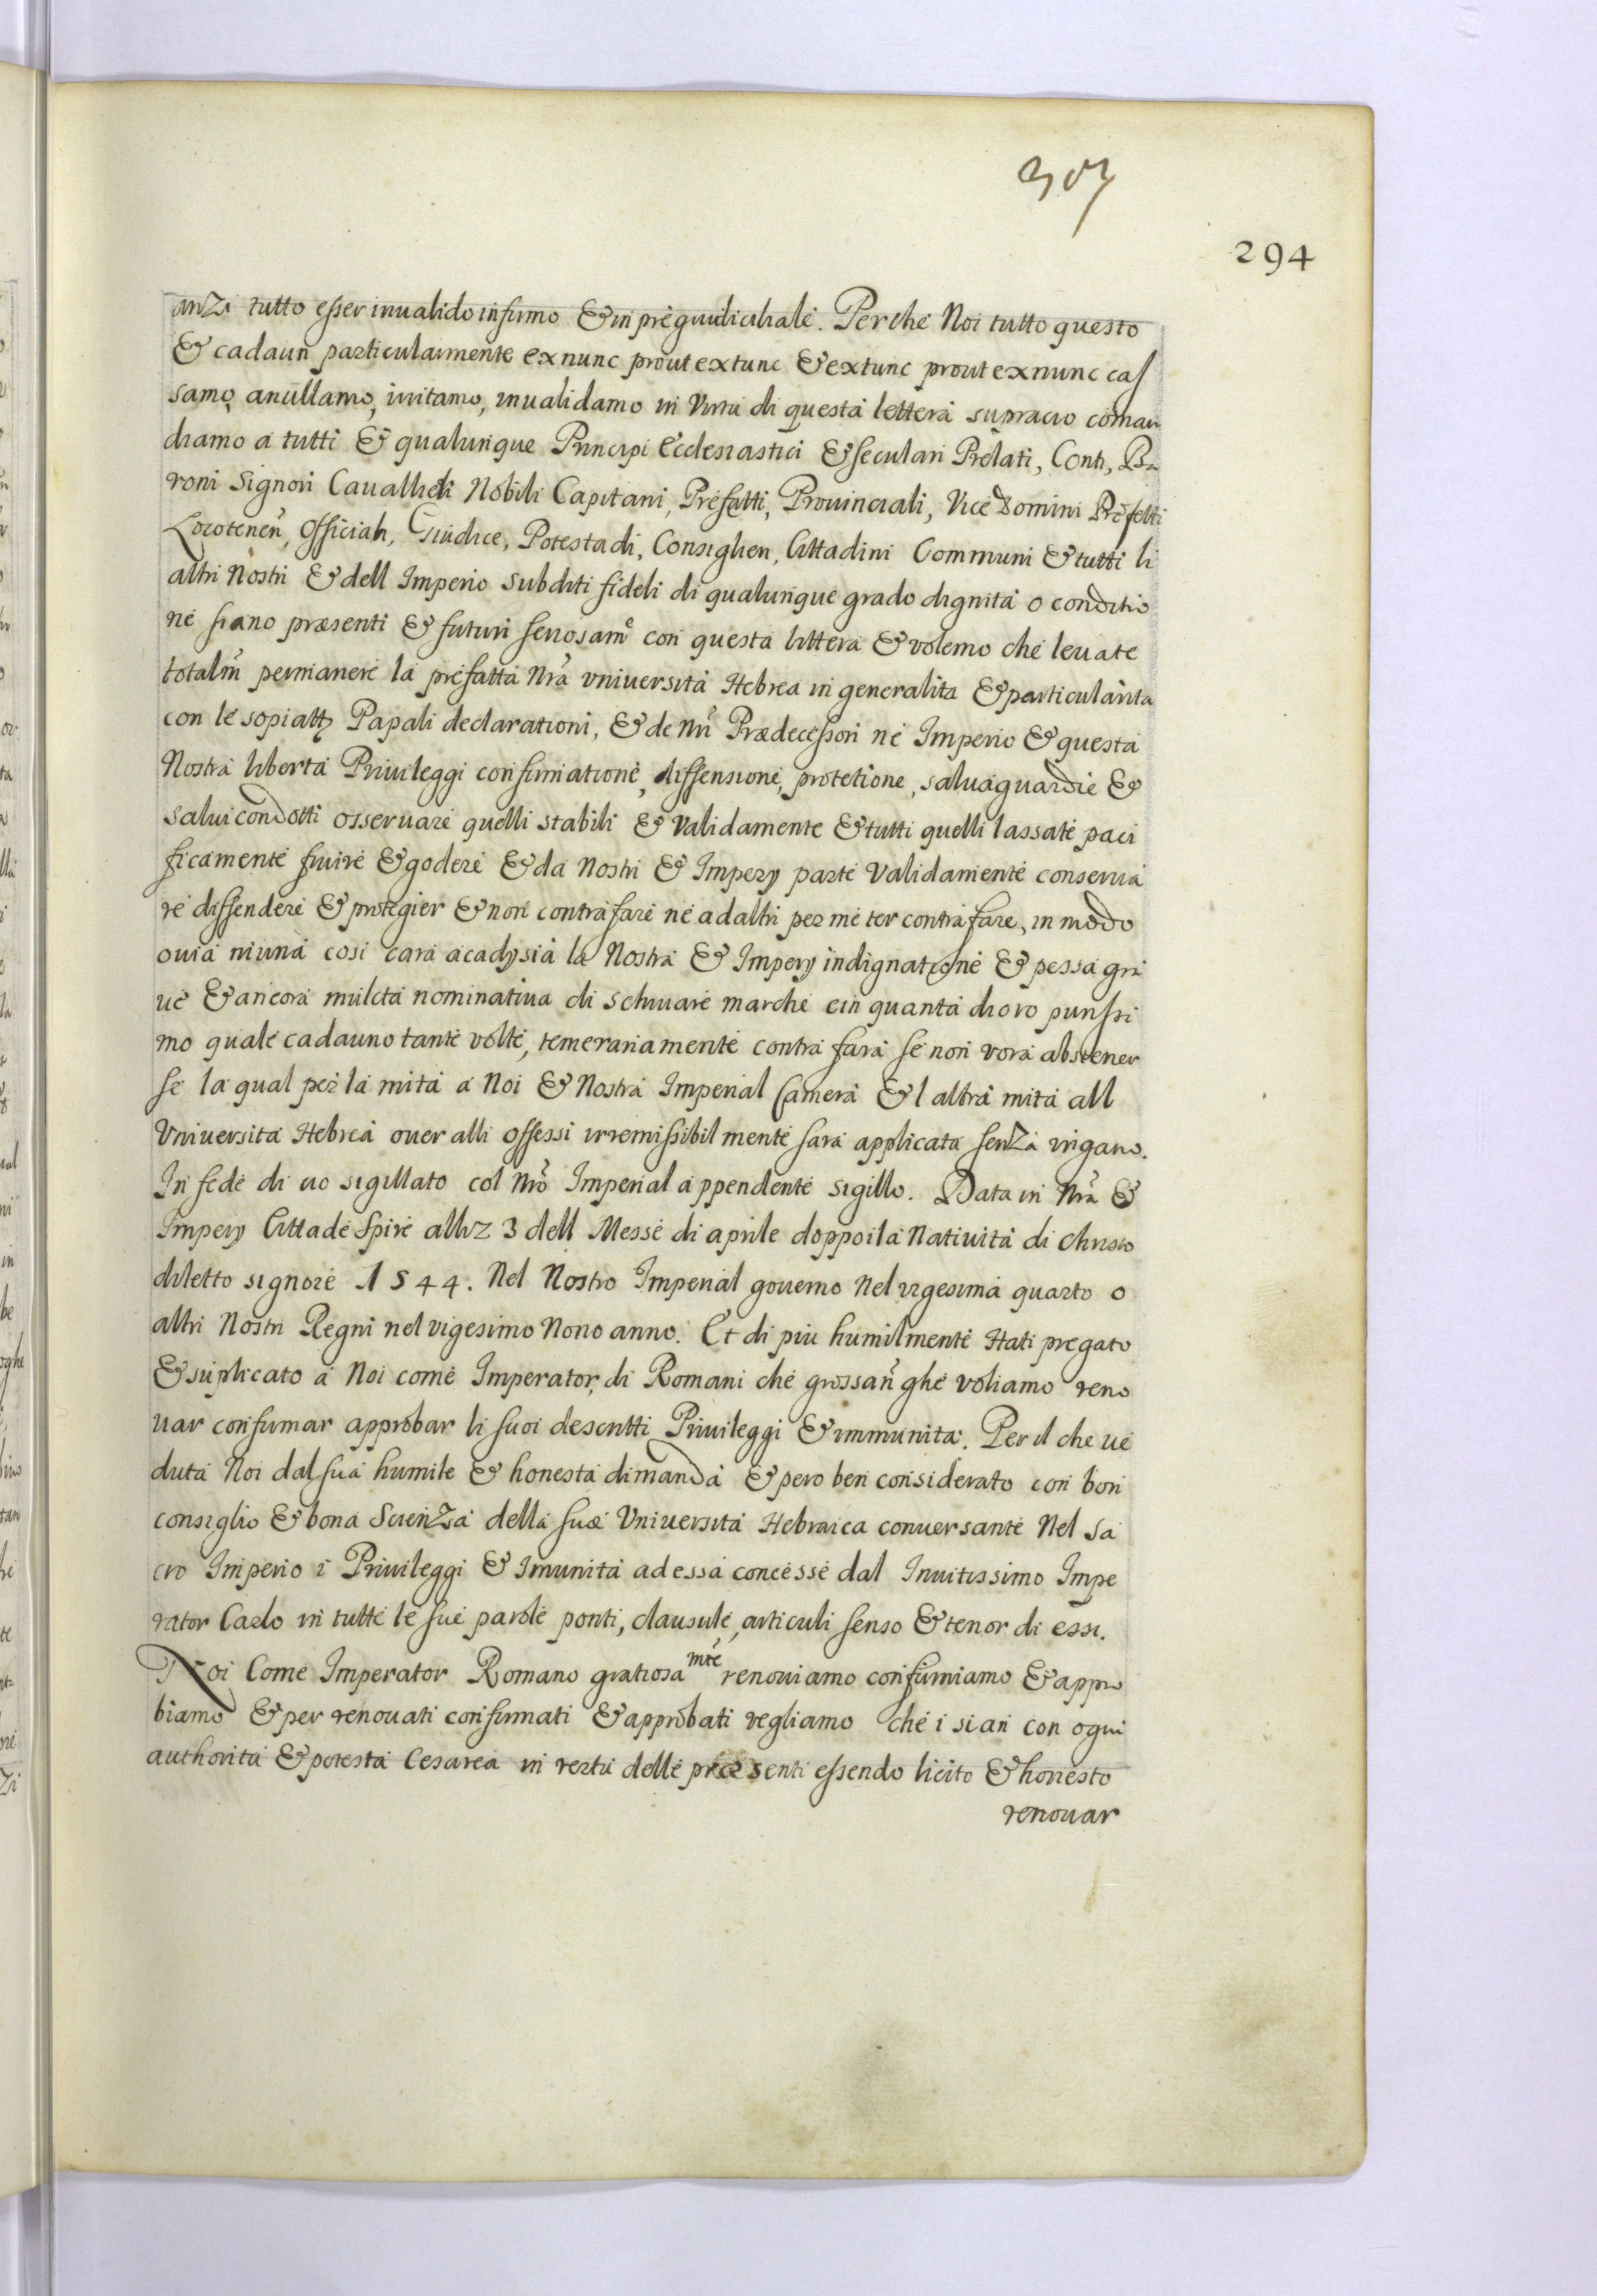 307
294
anzi tutto esser inualido infirmo & in pregiudichale. Perche Noi tutto questo
& cadaun particularmente ex nunc prout ex tunc & ex tunc prout ex nunc cas
samo, anullamo, irritamo, inualidamo in Virtu di questa lettera supracio coman
diamo a tutti & qualunque Principi Ecclesiastici & seculari Prelati, Conti, Ba
roni Signori Cauallieri Nobili Capitani, Prefatti, Prouinciali, Vice Domini Prefetti
Locotenen, Officiali, Giudice, Potestadi, Consiglieri, Cittadini Communi & tutti li
altri Nostri & dell Imperio subditi fideli di qualunque grado dignita o conditio
ne siano præsenti & futuri seriosame con questa littera & volemo che leuate
totalm permanere la prefatta Nra vniuersita Hebrea in generalita & particularita
con le Papali declarationi, & de Nri Prædecessori ne Imperio & questa
Nostra liberta Priuileggi confirmatione, diffensione, protetione, saluaguardie &
saluicondotti osseruare quelli stabili & Validamente & tutti quelli lassate paci
ficamente fruire & godere & da Nostri & Impery parte Validamente conserua
re diffendere & protegier & non contrafare ne ad altri per me ter contrafare, in modo
ouia niuna cosi cara acadysia la Nostra & Impery indignatione & pessa gra
ue & ancora mulcta nominatiua di schiuare marche cin quanta di oro purissi
mo quale cadauno tante volte, temerariamente contra fara se non vora abstener
se la qual per la mita a Noi & Nostra Imperial Camera & l altra mita all
Vniuersita Hebrea ouer alli offessi irremissibil mente sara applicata senza ingano.
In fede di cio sigillato col Nro Imperial appendente sigillo. Data in Nra &
Impery Cittade Spire alliz 3 dell Messe di aprile doppoi la Natiuita di Christo
diletto signore 1544. Nel Nostro Imperial gouerno Nel vigesima quarto o
altri Nostri Regni nel vigesimo Nono anno. Et di piu humilmente stati pregato
& suplicato a Noi come Imperator di Romani che ghe voliamo reno
uar confirmar approbar li suoi descritti Priuileggi & immunita. Per il che ue
duta Noi dal sua humile & honesta dimanda & pero ben considerato con bon
consiglio & bona Scienza della suæ Vniuersita Hebraica conuersante Nel Sa
cro Imperio i Priuileggi & Imunita ad essa concesse dal Inuitissimo Impe
rator Carlo in tutte le sue parole ponti, clausule, articuli senso & tenor di essi.
Noi Come Imperator Romano gratiosamte renouiamo confirmiamo & appro
biamo & per renouati confirmati & approbati vegliamo che i sian con ogni
authorita & potesta Cesarea in vertu delle præsenti essendo licito & honesto
renouar